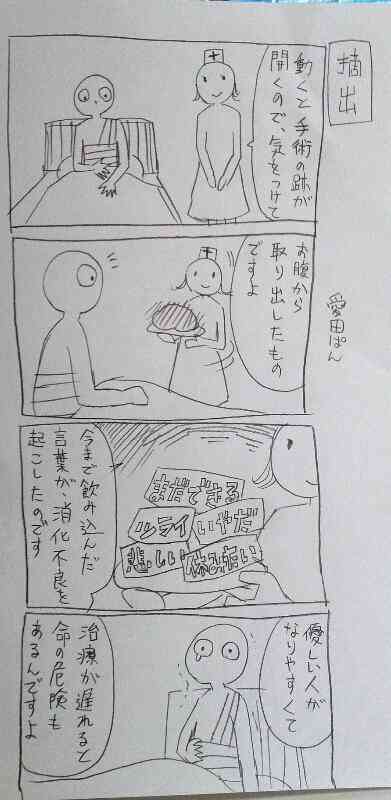 摘出
動くと手術の跡が
開くので、気をつけて
愛田ぱん
お腹から
取り出したもの
ですよ
まだできる
ツライ いやだ
悲しい 休みたい
今まで飲み込んだ
言葉が、消化不良を
起こしたのです
優しい人が
なりやすくて
治療が遅れると
命の危険も
あるんですよ